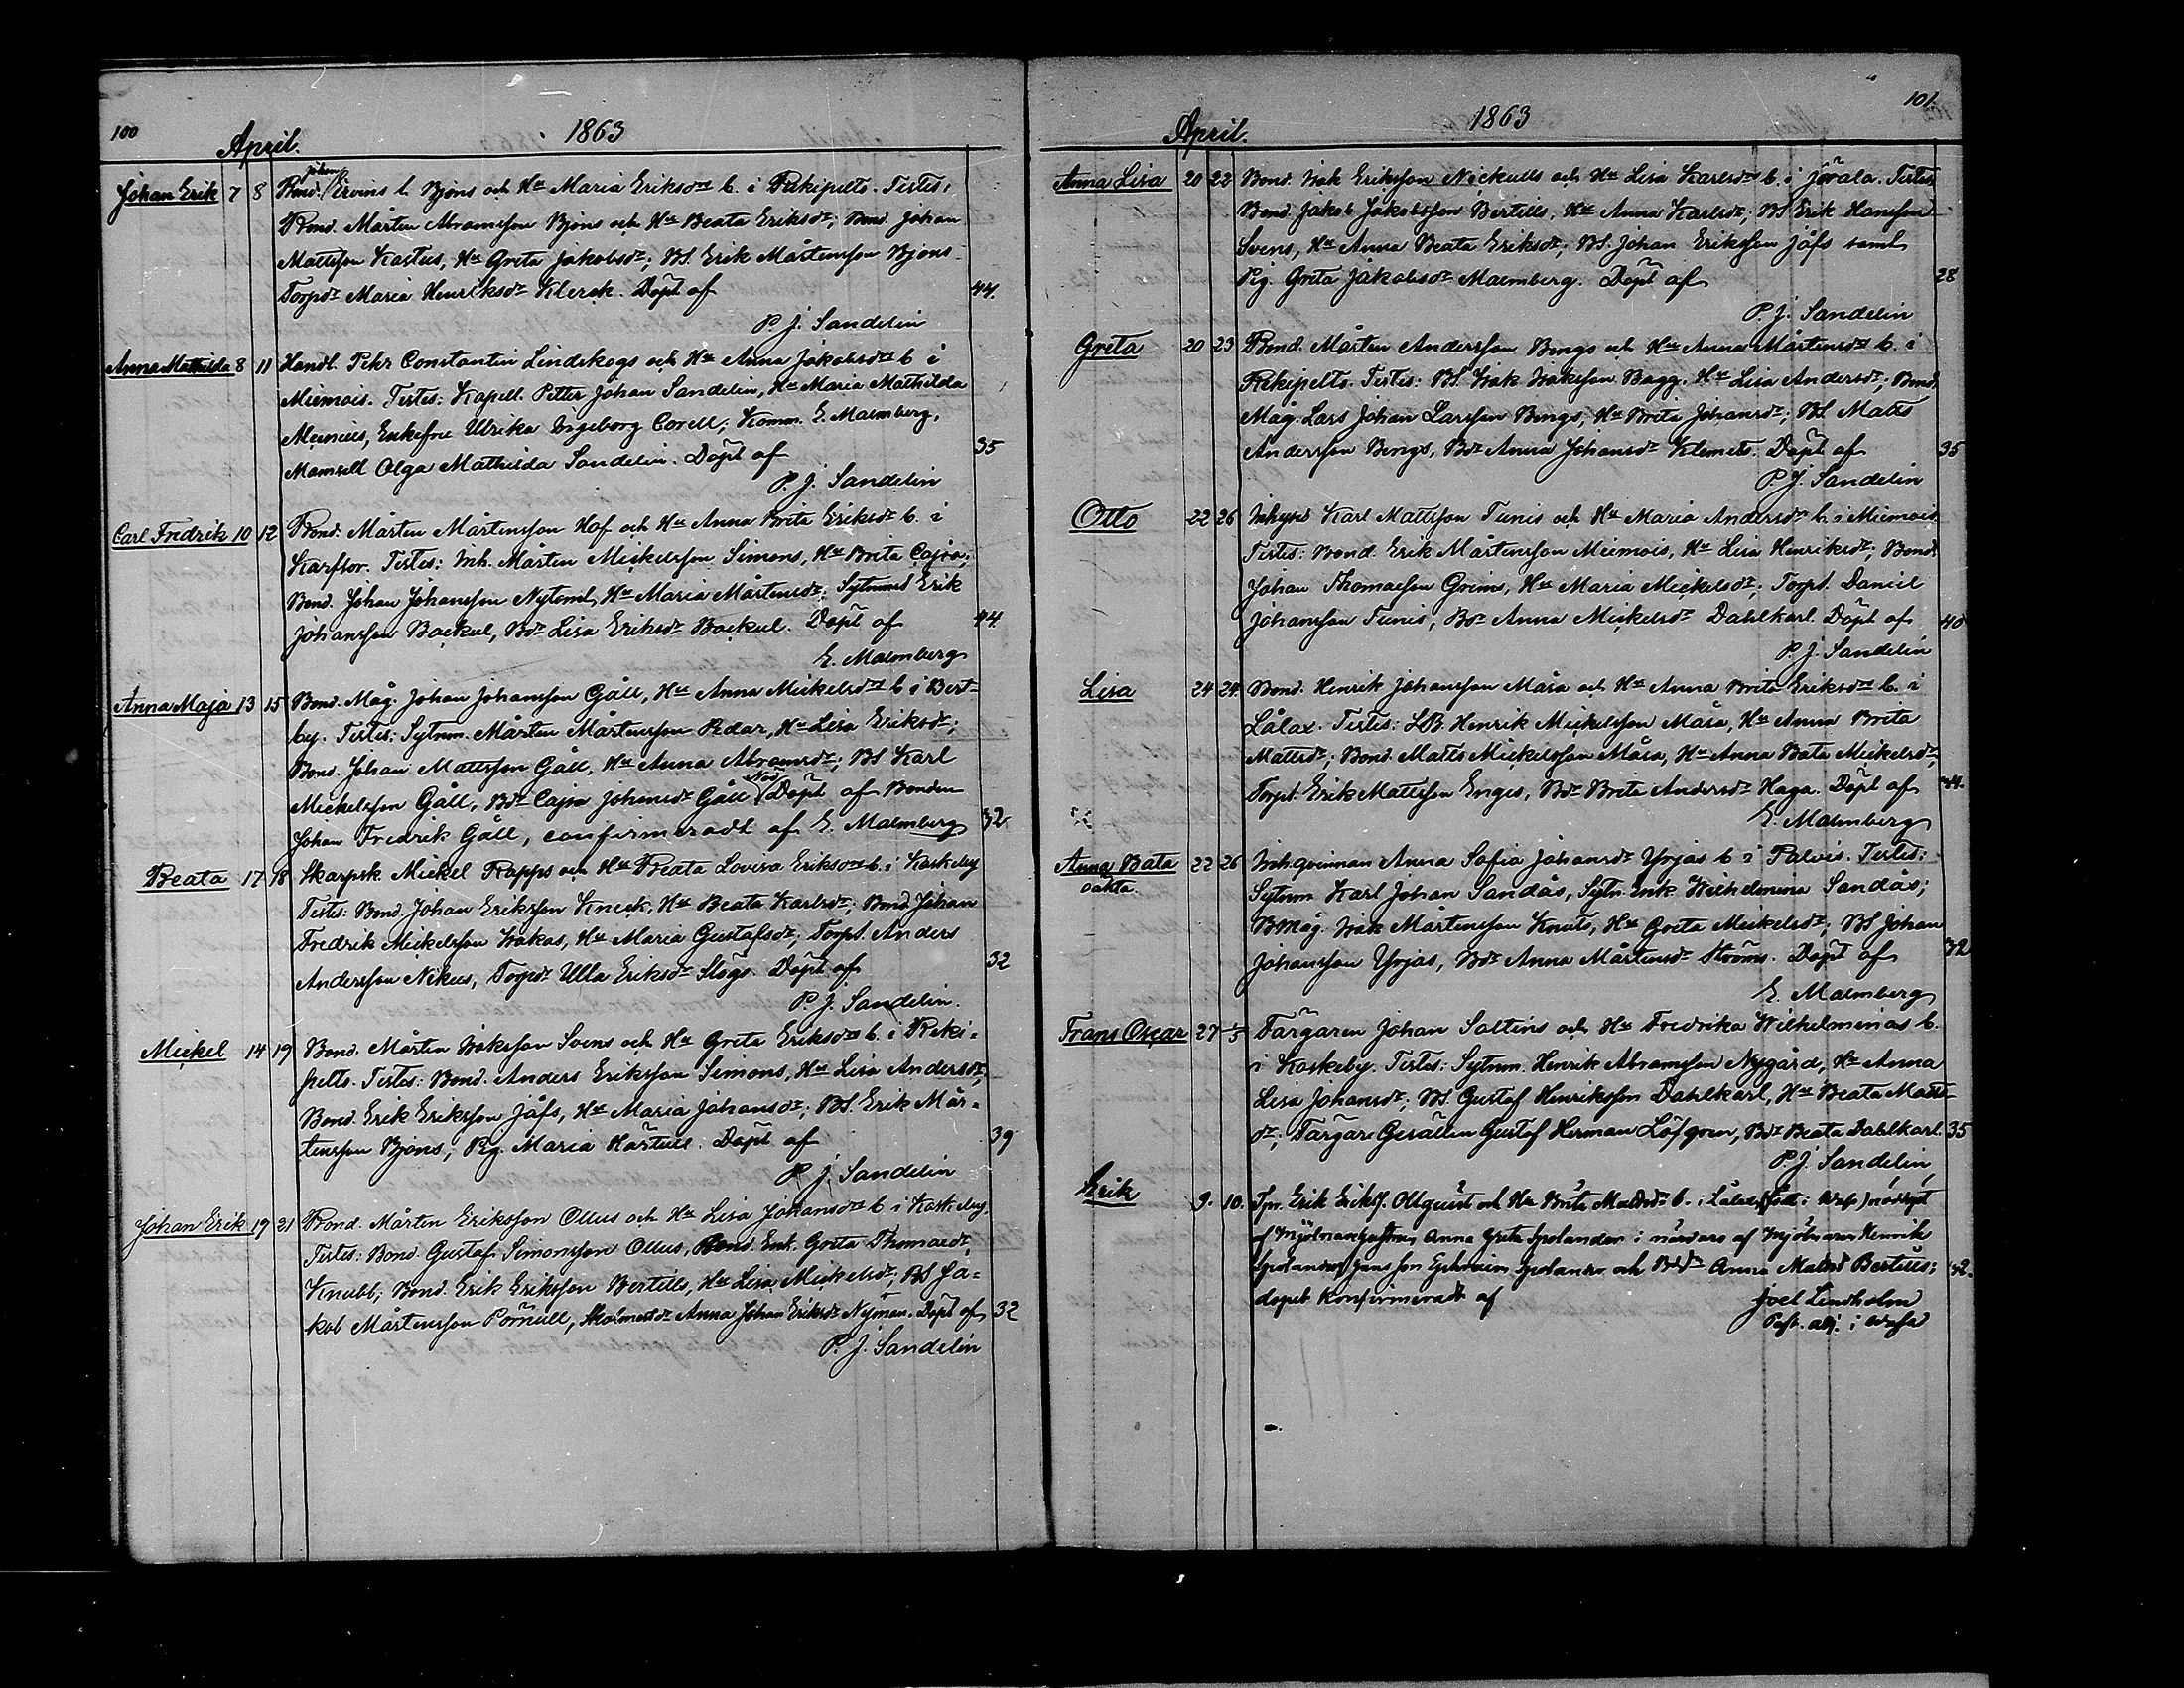 100
April.
1863
Johan
Johan Erik 7 8 Bond. Ervins b. Bjöns och Hu Maria Eriksdrs b. i Rekipelto. Testes:
Bond. Mårten Abramsson Bjöns och Hu Beata Eriksdr; Bond. Johan
Mattsson Kastus, Hu Greta Jakobsdr; BS. Erik Mårtensson Bjöns
Torpdr Maria Henriksdr Klerck. Döpt af 44.
P. J. Sandelin
Anna Mathilda 8 11 Handl. Petr Constantin Lindskogs och Hu Anna Jakobsdrs b. i
Miemois. Testes: Kapell. Petter Johan Sandelin, Hu Maria Mathilda
Meinius, Enkefru Ulrika Ingeborg Corell; Komm. E. Malmberg,
Mamsell Olga Mathilda Sandelin. Döpt af 35
P. J. Sandelin
Carl Fredrik 10 12 Bond. Mårten Mårtensson Hof och Hu Anna Brita Eriksdr b. i
Karfsor. Testes: Inh. Mårten Mickelsson Simons, Hu Brita Cajsa;
Bond. Johan Johansson Nytoml, Hu Maria Mårtensdr; Sytnmd Erik
Johansson Backul, Bdr Lisa Eriksdr Backul. Döpt af 44.
E. Malmberg
Anna Maja 13 15 Bond. Måg. Johan Johansson Gåll, Hu Anna Mickelsdrs b i Bert-
by. Testes: Sytnm. Mårten Mårtensson Pedar, Hu Lisa Eriksdr;
Bond. Johan Mattsson Gåll, Hu Anna Abramsdr; BS Karl
Nöd
Mickelsson Gåll, Bdr Cajsa Johansdr Gåll Döpt af Bonden
Johan Fredrik Gåll, confirmeradt af E. Malmberg 32
Beata 17 18 Skarpsk Mickel Rapps och Hu Beata Lovisa Eriksdrs b. i Kaskeby
Testes: Bond. Johan Eriksson Kneck, Hu Beata Karlsdr; Bond Johan
Fredrik Mickelsson Isakas, Hu Maria Gustafsdr; Torpt. Anders
Andersson Nikus, Torpdr Ulla Eriksdr Slögs. Döpt af 32
P. J. Sandelin.
Mickel 14 19 Bond. Mårten Isaksson Svens och Hu Greta Eriksdrs b. i Reki-
pelto. Testes: Bond. Anders Eriksson Simons, Hu Lisa Andersdr;
Bond. Erik Eriksson Jåfs, Hu Maria Johansdr; BS. Erik Mår-
tensson Bjöns; Pig. Maria Härtull. Döpt af 39
P. J. Sandelin
Johan Erik 19 21 Bond. Mårten Eriksson Ollus och Hu Lisa Johansdrs b i Kaskeby.
Testes: Bond. Gustaf Simonsson Ollus, Bond. Enk. Greta Thomasdr
Knubb; Bond. Erik Eriksson Bertills, Hu Lisa Mickelsdr; BS Ja-
kob Mårtensson Pörnull, Skolmestdr Anna Johan Eriksdr Nyman. Döpt af 32
P. J. Sandelin
101.
April.
1863
Anna Lisa 20 22 Bond. Isak Eriksson Nickulls och Hu Lisa Karlsdrs b. i Jörala. Testes
Bond. Jakob Jakobsson Bertills, Hu Anna Karlsdr; BS Erik Hansson
Svens, Hu Anna Beata Eriksdr; BS. Johan Eriksson Jåfs samt
Pig. Greta Jakobsdr Malmberg. Döpt af 28
P. J. Sandelin
Greta 20 23 Bond. Mårten Andersson Bengs och Hu Anna Mårtensdrs b. i
Rekipelto. Testes: BS. Isak Isaksson Bagg, Hu Lisa Andersdr; Bond.
Måg. Lars Johan Larsson Bengs, Hu Brita Johansdr; BS. Matts
Andersson Bengs, Bdr Anna Johansdr Klemets. Döpt af 35
P. J. Sandelin
Otto 22 26 Inhyses Karl Mattsson Tunis och Hu Maria Andersdrs b. i Miemois.
Testes: Bond. Erik Mårtensson Miemois, Hu Lisa Henriksdr; Bond
Johan Thomasson Grims, Hu Maria Mickelsdr; Torpt. Daniel
Johansson Tunis, Bdr Anna Mickelsdr Dahlkarl. Döpt af 40
P. J. Sandelin
Lisa 24 24 Bond. Henrik Johansson Måsa och Hu Anna Brita Eriksdrs b. i
Lålax. Testes: LB. Henrik Mickelsson Måsa, Hu Anna Brita
Mattsdr; Bond. Matts Mickelsson Måsa, Hu Anna Bata Mickelsdr;
Torpt. Erik Mattsson Enges, Bdr Brita Andersdr Haga. Döpt af 44.
E. Malmberg
Anna Bata 22 26 Inh.qvinnan Anna Sofia Johansdr Yrjas b i Palvis. Testes:
oäkta. Sytnm Karl Johan Sandås, Sytn. Enk. Wilhelmina Sandås;
BMåg. Isak Mårtensson Knuts, Hu Greta Mickelsdr; BS Johan
Johansson Yrjas, Bdr Anna Mårtensdr Ströms. Döpt af 32
E. Malmberg
Frans Oscar 27 1/5 Färgaren Johan Saltins och Hu Fredrika Wilhelminas b.
i Kaskeby. Testes: Sytnm. Henrik Abramsson Nygård, Hu Anna
Lisa Johansdr; BS. Gustaf Henriksson Dahlkarl, Hu Beata Matts-
dr; Färgare Gesällen Gustaf Herman Löfgren, Bdr Beata Dahlkarl. 35
P. J. Sandelin
Erik 9. 10. Tpr. Erik Eriksf. Ollquist och Hu Brita Mattsdr b. i Lålax (född i Wasa) nöddöpt
af Mjölnarehustrun Anna Greta Spolander i närvaro af Mjölnaren Henrik
Spolander, hans son Ephraim Spolander och Bdr Anna Matsd Bertills; 42.
dopet konfirmeradt af Joel Lindholm
Past. adj. i Wasa